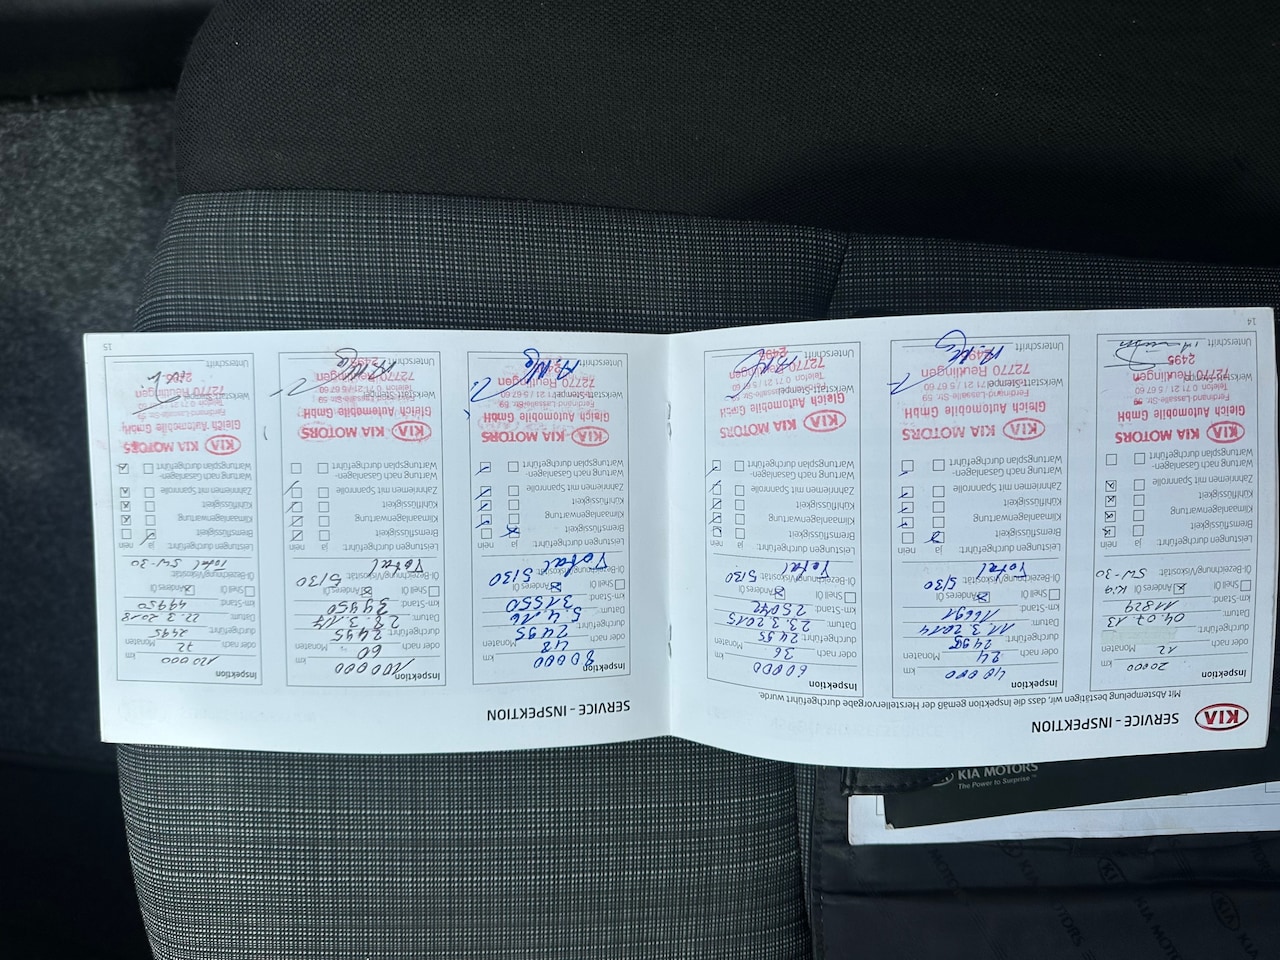 KIA
SERVICE - INSPEKTION
Mit Abstempelung bestätigen wir, dass die Inspektion gemäß der Herstellervorgabe durchgeführt wurde.
Inspektion
20000 km
oder nach 12 Monaten
durchgeführt
Datum: 04.07.13
km-Stand: 11824
Shell Öl Anderes Öl Kia
Öl-Bezeichnung/Viskosität: 5W-30
Leistungen durchgeführt: ja nein
Bremsflüssigkeit
Klimaanlagenwartung
Kühlflüssigkeit
Zahnriemen mit Spannrolle
Wartung nach Gasanlagen-
Wartungsplan durchgeführt
KIA KIA MOTORS
Gleich Automobile GmbH
Ferdinand-Lassalle-Str. 59
72770 Reutlingen
Telefon 0 71 21 / 5 67 60
Werkstatt-Stempel
2495
Unterschrift
Inspektion
40000 km
oder nach 24 Monaten
durchgeführt 2495
Datum: 11.3.2014
km-Stand: 16691
Shell Öl Anderes Öl
Öl-Bezeichnung/Viskosität: 5/30
Total
Leistungen durchgeführt: ja nein
Bremsflüssigkeit
Klimaanlagenwartung
Kühlflüssigkeit
Zahnriemen mit Spannrolle
Wartung nach Gasanlagen-
Wartungsplan durchgeführt
KIA KIA MOTORS
Gleich Automobile GmbH
Ferdinand-Lassalle-Str. 59
72770 Reutlingen
Telefon 0 71 21 / 5 67 60
Werkstatt-Stempel
2495
Unterschrift
Inspektion
60000 km
oder nach 36 Monaten
durchgeführt 2495
Datum: 23.3.2015
km-Stand: 25072
Shell Öl Anderes Öl
Öl-Bezeichnung/Viskosität: 5/30
Total
Leistungen durchgeführt: ja nein
Bremsflüssigkeit
Klimaanlagenwartung
Kühlflüssigkeit
Zahnriemen mit Spannrolle
Wartung nach Gasanlagen-
Wartungsplan durchgeführt
KIA KIA MOTORS
Gleich Automobile GmbH
Ferdinand-Lassalle-Str. 59
72770 Reutlingen
Telefon 0 71 21 / 5 67 60
Werkstatt-Stempel
2495
Unterschrift
14
SERVICE - INSPEKTION
Inspektion
80000 km
oder nach 48 Monaten
durchgeführt 2495
Datum: 5.4.16
km-Stand: 31550
Shell Öl Anderes Öl
Öl-Bezeichnung/Viskosität: 5/30
Total
Leistungen durchgeführt: ja nein
Bremsflüssigkeit
Klimaanlagenwartung
Kühlflüssigkeit
Zahnriemen mit Spannrolle
Wartung nach Gasanlagen-
Wartungsplan durchgeführt
KIA KIA MOTORS
Gleich Automobile GmbH
72770 Reutlingen
Werkstatt-Stempel
Unterschrift
Inspektion
100000 km
oder nach 60 Monaten
durchgeführt 2495
Datum: 28.3.17
km-Stand: 39950
Shell Öl Anderes Öl
Öl-Bezeichnung/Viskosität: 5/30
Total
Leistungen durchgeführt: ja nein
Bremsflüssigkeit
Klimaanlagenwartung
Kühlflüssigkeit
Zahnriemen mit Spannrolle
Wartung nach Gasanlagen-
Wartungsplan durchgeführt
KIA KIA MOTORS
Gleich Automobile GmbH
72770 Reutlingen
Werkstatt-Stempel
2495
Unterschrift
Inspektion
120000 km
oder nach 72 Monaten
durchgeführt 2495
Datum: 22.3.2018
km-Stand: 49950
Shell Öl Anderes Öl
Öl-Bezeichnung/Viskosität:
Total 5W-30
Leistungen durchgeführt: ja nein
Bremsflüssigkeit
Klimaanlagenwartung
Kühlflüssigkeit
Zahnriemen mit Spannrolle
Wartung nach Gasanlagen-
Wartungsplan durchgeführt
KIA KIA MOTORS
Gleich Automobile GmbH
72770 Reutlingen
Werkstatt-Stempel
Unterschrift
15
KIA MOTORS
The Power to Surprise™